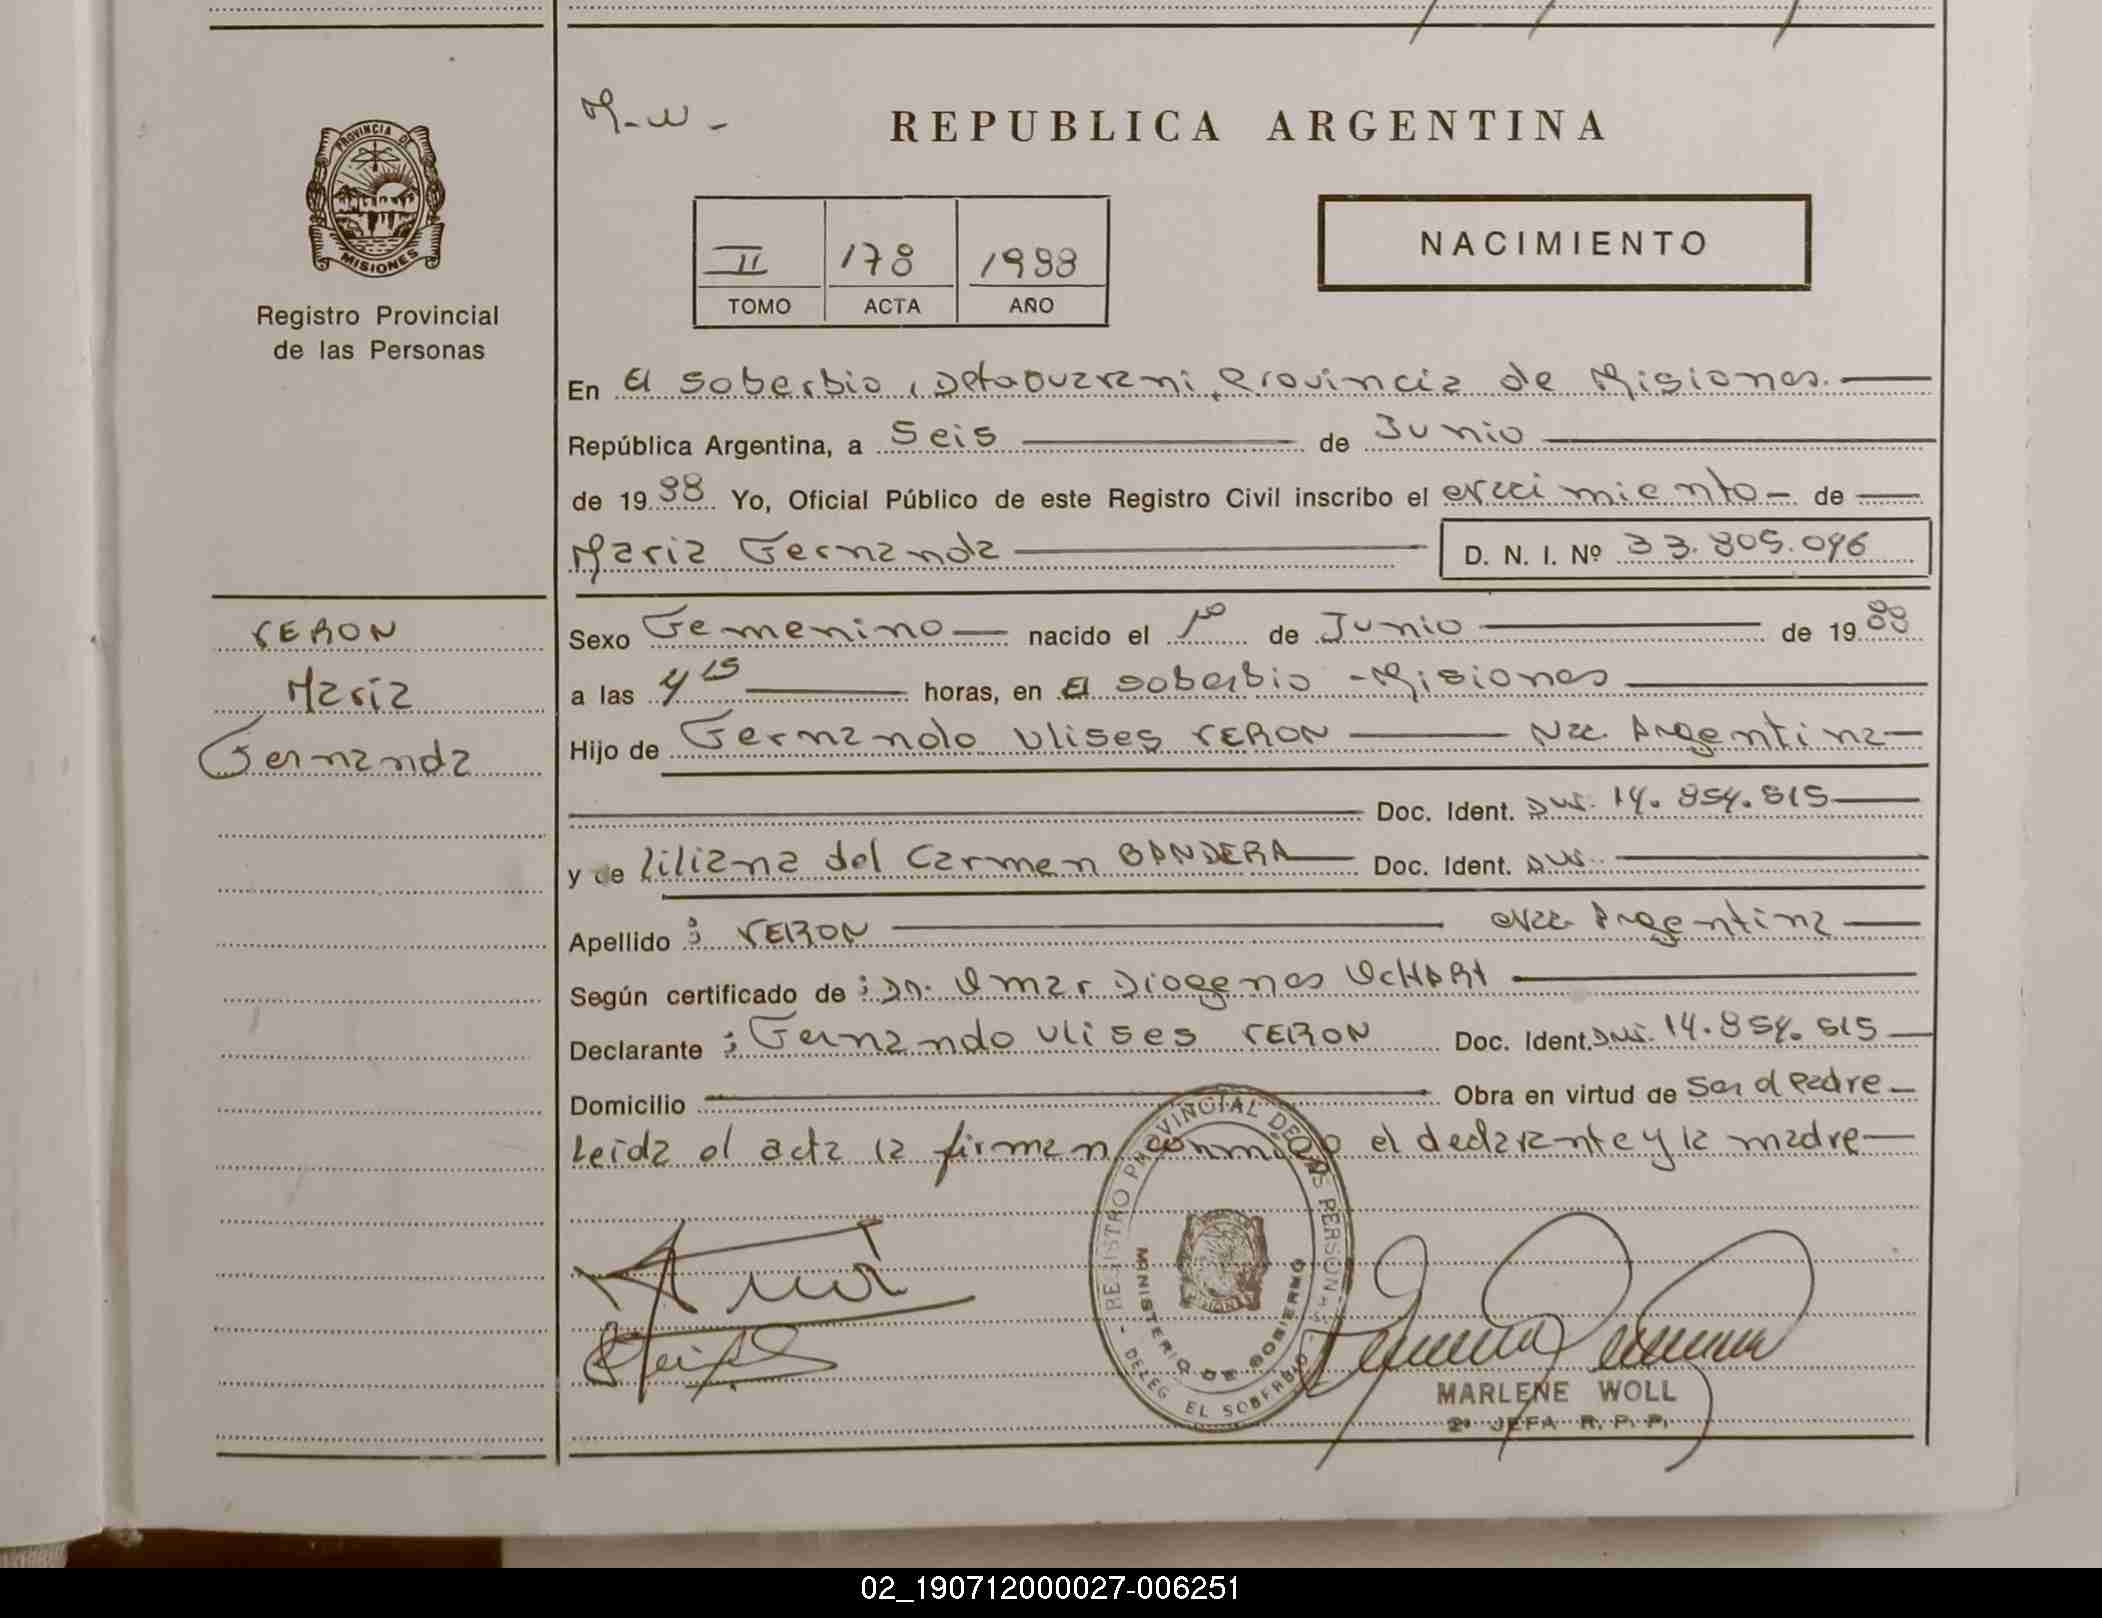 M-W-
REPUBLICA ARGENTINA
PROVINCIA DE MISIONES
Registro Provincial
de las Personas
II 178 1988
TOMO ACTA AÑO
NACIMIENTO
En El Soberbio, Dpto Guarani, Provincia de Misiones.
República Argentina, a Seis de Junio
de 1988 Yo, Oficial Público de este Registro Civil inscribo el Nacimiento - de
Maria Fernanda D. N. I. Nº 33.805.096
VERON
Maria
Fernanda
Sexo Femenino nacido el 1º de Junio de 1988
a las 4 15 horas, en El Soberbio - Misiones
Hijo de Fernando Ulises VERON Nac. Argentina
Doc. Ident. DNI. 14.854.515
y de Liliana del Carmen BANDERA Doc. Ident. DNI.
Apellido : VERON Nac. Argentina
Según certificado de : Dr. Omar Diogenes
Declarante : Fernando Ulises VERON Doc. Ident. DNI. 14.854.515
Domicilio Obra en virtud de Ser el Padre
Leida el acta la firman conmigo el declarante y la madre
REGISTRO PROVINCIAL DE LAS PERSONAS
MINISTERIO DE GOBIERNO
- DELEG EL SOBERBIO
MARLENE WOLL
2ª JEFA R. P. P.
02_190712000027-006251